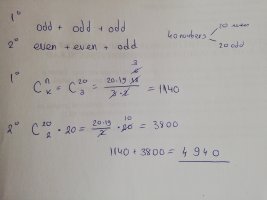 1° odd + odd + odd
2° even + even + odd
40 numbers
20 even
20 odd
1° C n k = C 20 3 = 20·19·18 / 3·2 = 1140
2° C 20 2 · 20 = 20·19 / 2 · 20 = 3800
1140 + 3800 = 4940